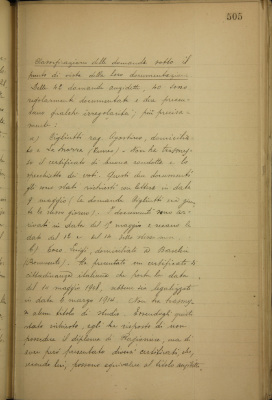 505
Classificazione delle domande sotto il
punto di vista della loro documentazione
Delle 42 domande anzidette, 40 sono
regolarmente documentate e due presen-
tano qualche irregolarità; più precisa-
mente:
a) rag. Agostino, domicilia-
to a - Non ha trasmes-
so il certificato di buona condotta e lo
specchietto dei voti. Questi due documenti
gli sono stati richiesti con lettera in data
9 maggio (la domanda
). I documenti sono ar-
rivati in data del maggio e recano la
data del 12 e del
b) Luigi, domiciliato a
(Benevento). Ha presentato un certificato di
cittadinanza italiana che porta la data
del 10 maggio 1908, sebbene sia legalizzato
in data 6 marzo 1914. Non ha trasmes-
so alcun titolo di studio. Essendogli questo
stato richiesto, egli ha risposto di non
possedere il diploma di Ragioniere, ma di
aver però presentato diversi certificati, che,
secondo lui, possono equivalere al titolo anzidetto.